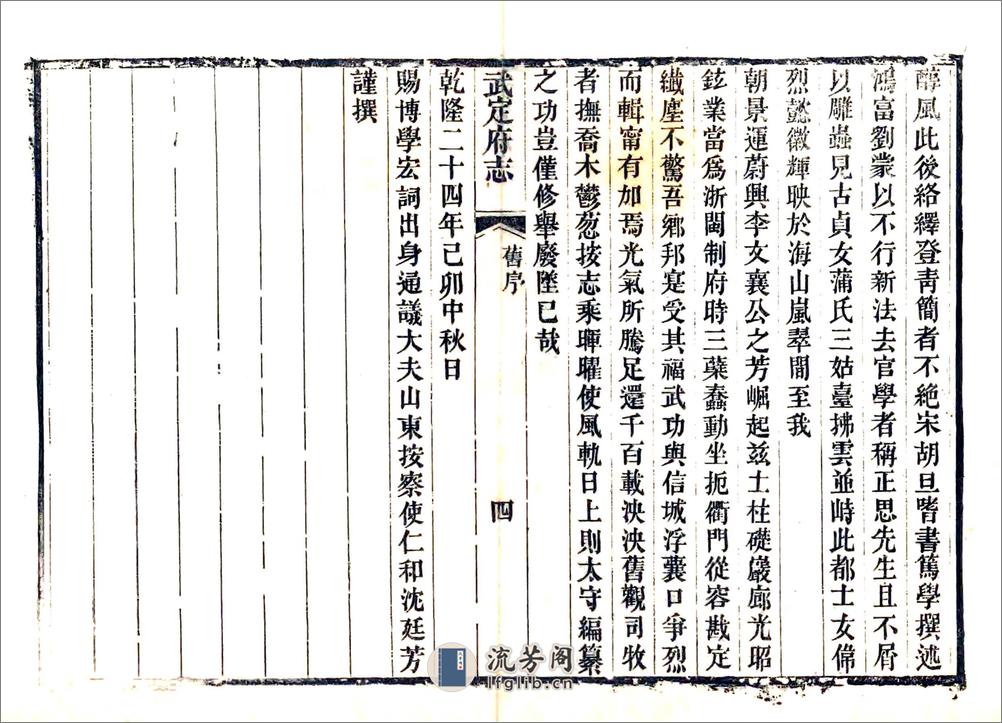 醇風此後絡繹登青簡者不絕宋胡旦嗜書篤學撰述
鴻富劉蒙以不行新法去官學者稱正思先生且不屑
以雕蟲見古貞女蒲氏三姑臺拂雲並峙此都士女偉
烈懿徽輝映於海山嵐翠閒至我
朝景運蔚興李文襄公之芳崛起茲土柱礎巖廊光昭
鉉業當爲浙閩制府時三蘖蠢動坐扼衢門從容戡定
纖塵不驚吾鄉邦寔受其福武功與信城浮囊口爭烈
而輯甯有加焉光氣所騰足還千百載泱泱舊觀司牧
者撫喬木鬱葱按志乘暉曜使風軌日上則太守編纂
之功豈僅修舉廢墜已哉
武定府志
舊序
四
乾隆二十四年己卯中秋日
賜博學宏詞出身通議大夫山東按察使仁和沈廷芳
謹撰
流芳阁
lfglib.cn